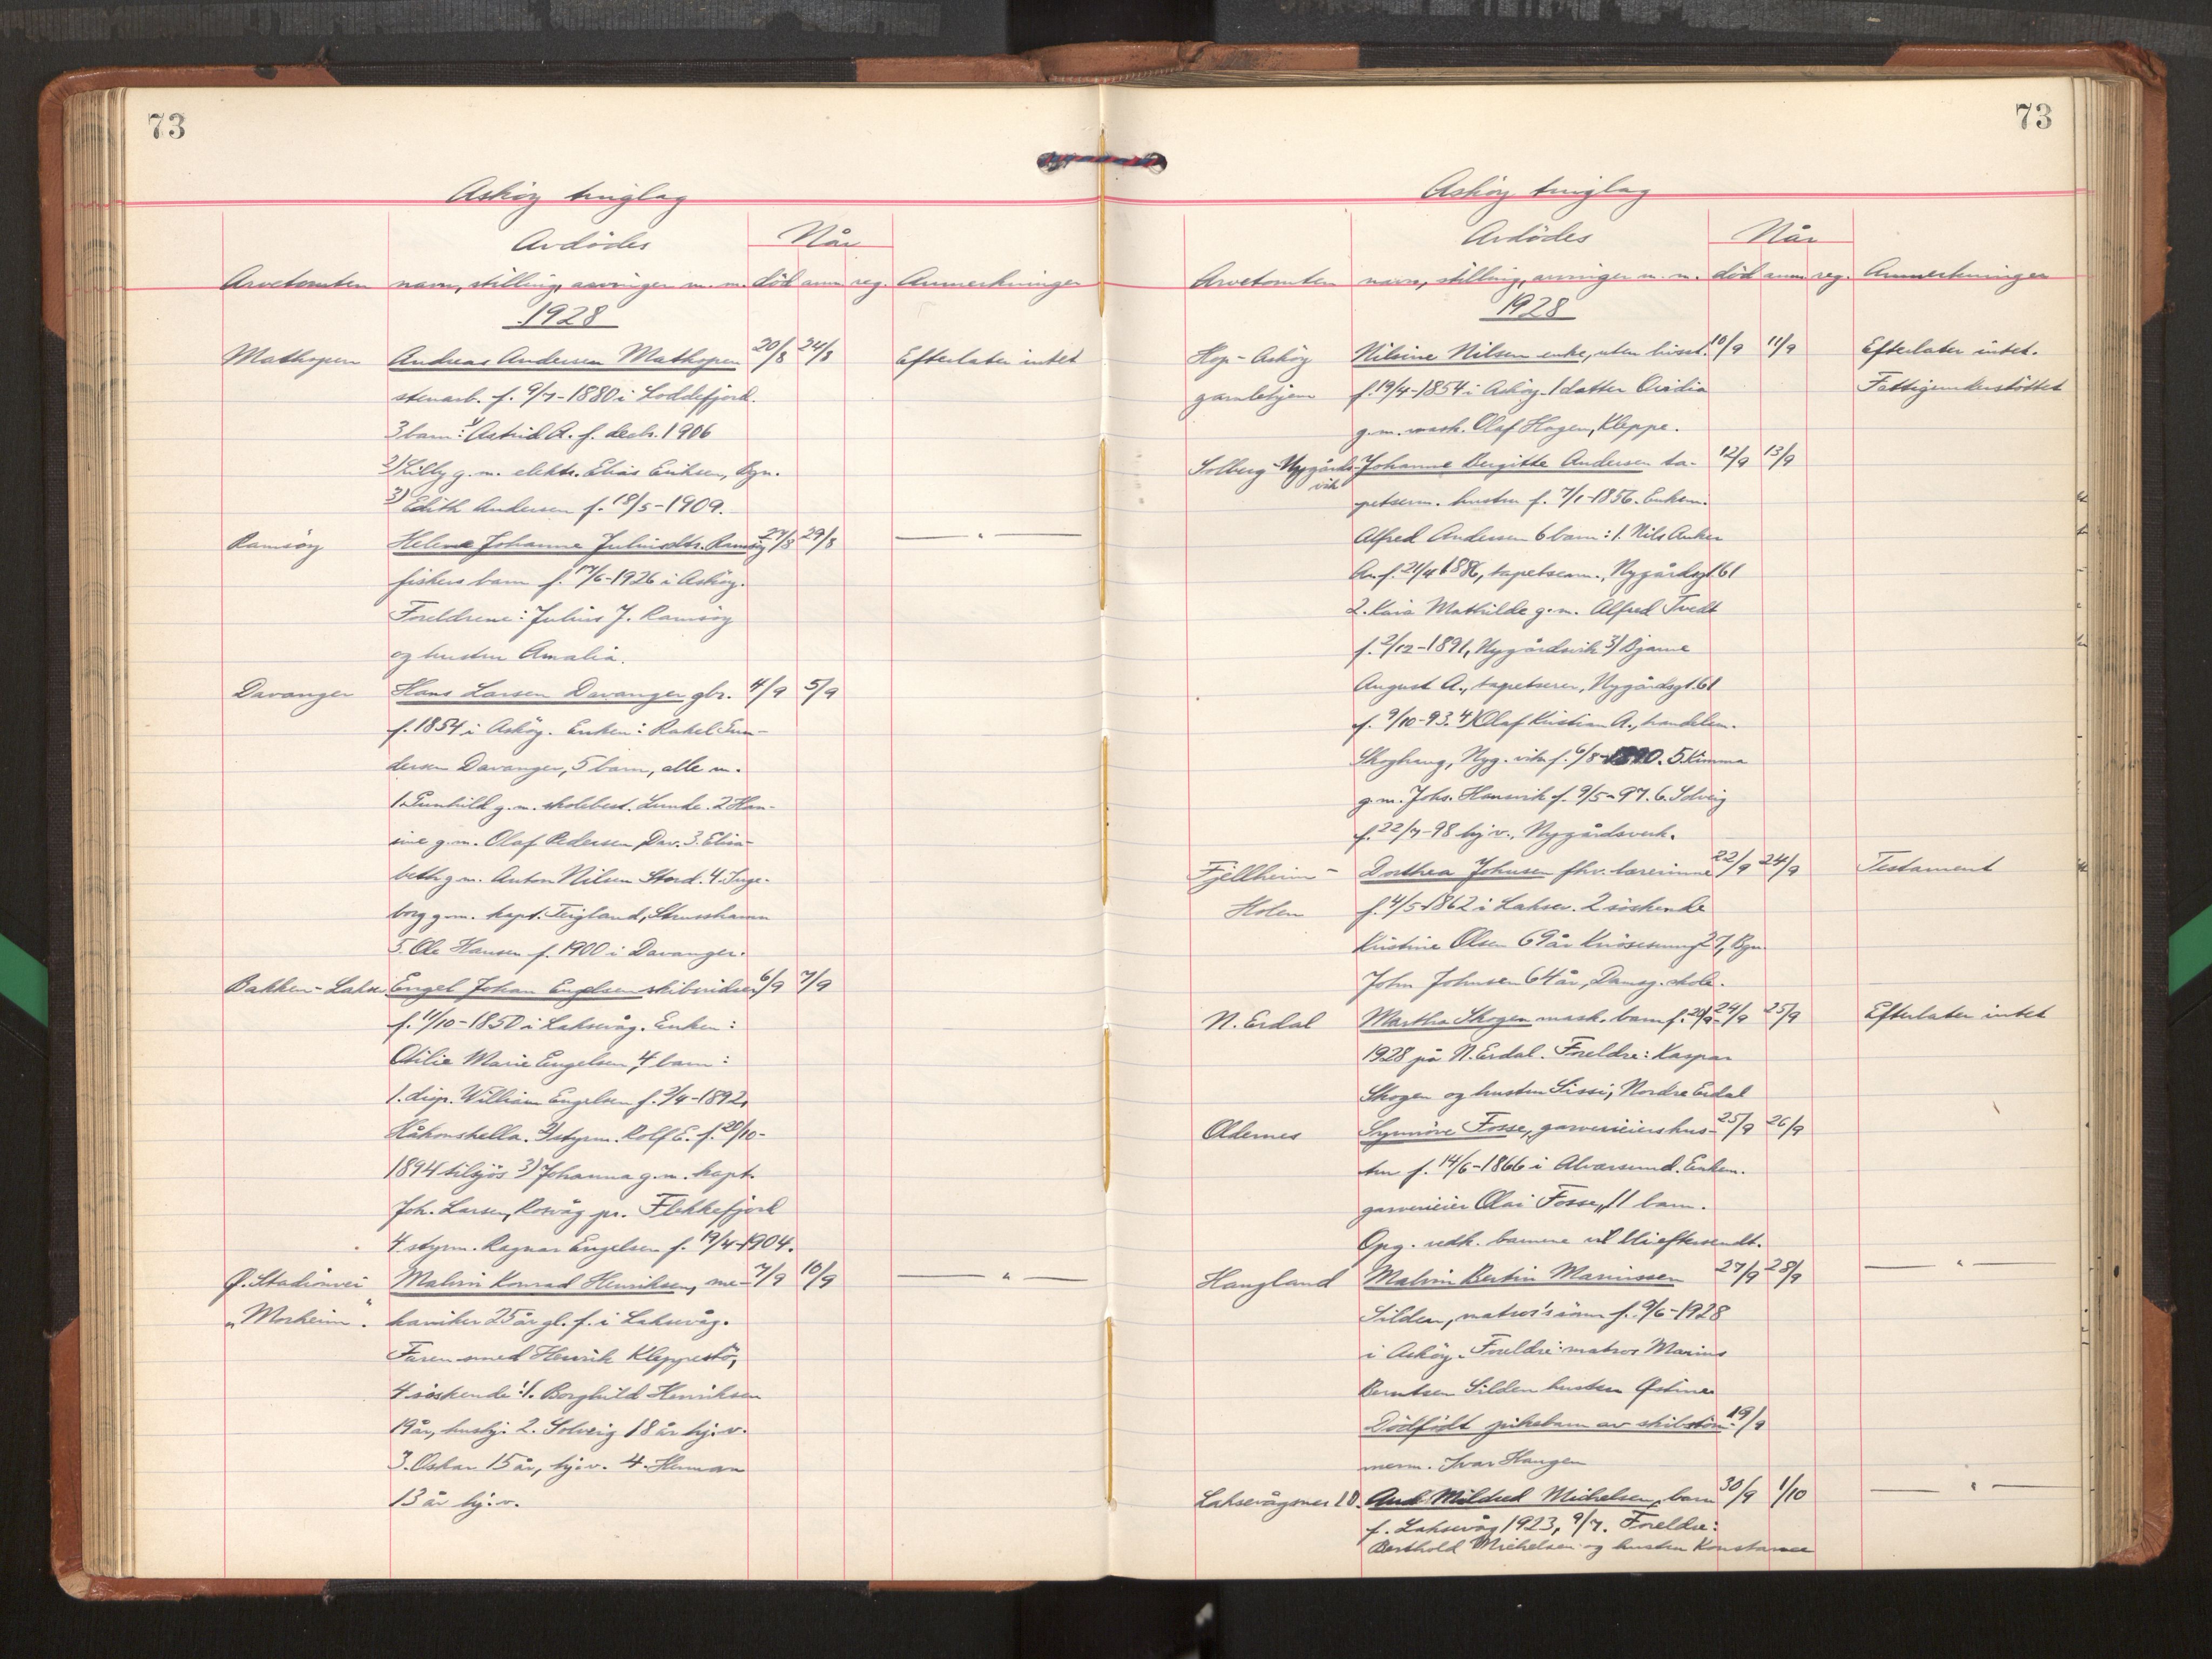 73
Askøy tinglag
Avdødes
Når
Arvetomten navn, stilling, arvinger m. m. død anm reg. Anmerkninger
1928
Mathopen Andreas Andersen Mathopen 20/8 24/8 Efterlater intet
stenarb. f. 9/7-1880 i Loddefjord.
3 barn: 1) Astrid A. f. decbr. 1906
2) Lilly g.m. elektr. Elias Eriksen, Bgn.
3) Edith Andersen f. 18/5-1909.
Ramsøy Helene Johanne Juliusdtr. Ramsøy 27/8 29/8 — " —
fiskers barn f. 17/6-1926 i Askøy.
Foreldrene: Julius J. Ramsøy
og hustru Amalia.
Davanger Hans Larsen Davanger gbr. 4/9 5/9
f. 1854 i Askøy. Enken: Rakel Gun-
dersen Davanger, 5 barn, alle m.
1. Gunhild g.m. skolebest. Lunde. 2 Han-
sine g.m. Olaf Pedersen Dav. 3. Elisa-
beth g.m. Anton Nilsen Stord. 4. Inge-
borg g.m. kapt. Teigland, Strusshamn
5. Ole Hansen f. 1900 i Davanger.
Bakken-Laks. Engel Johan Engelsen skibsridser 6/9 7/9
f. 11/10-1850 i Laksevåg. Enken:
Otilie Marie Engelsen, 4 barn:
1. disp. William Engelsen f. 2/4-1892,
Håkonshella. 2) styrm. Rolf E. f. 20/10-
1894 tilsjøs 3) Johanna g.m. kapt.
Joh. Larsen, Rosvåg pr. Flekkefjord
4 styrm. Ragnar Engelsen f. 19/4-1904.
Ø. Stadionvei Malvin Konrad Henriksen, me- 7/9 10/9 — " —
"Morheim". kaniker 25 år gl. f. i Laksevåg.
Faren smed Henrik Kleppestø,
4 søskende: 1. Borghild Henriksen
19 år, husbj. 2. Solveig 18 år hj.v.
3. Oskar 15 år, hj.v. 4. Herman
13 år hj.v.
73
Askøy tinglag
Avdødes
Når
Arvetomten navn, stilling, arvinger m. m. død anm reg. Anmerkninger
1928
Hop-Askøy Nilsine Nilsen enke, uten livsst. 10/9 11/9 Efterlater intet.
gamlehjem f. 19/4-1854 i Askøy. 1 datter Ovidia Fattigunderstøttet
g.m. mask. Olaf Hagen, Kleppe.
Solberg-Nygårds- Johanne Bergitte Andersen ta- 12/9 13/9
vik petserm. hustru f. 7/1-1856. Enkem.
Alfred Andersen 6 barn: 1. Nils Anker
An. f. 21/4 1886, tapetserm., Nygårdsgt. 61
2. Kaia Mathilde g.m. Alfred Tvedt
f. 2/12-1891, Nygårdsvik 3) Bjarne
August A., tapetserer, Nygårdsgt. 61
f. 9/10-93. 4) Olaf Kristian A., handelsm.
Skoghaug, Nyg. vik f. 6/8-1890. 5 Kimma
g.m. Johs. Hansvik f. 9/5-97. 6. Solveig
f. 22/7-98 hj.v., Nygårdsvik.
Fjellheim- Dorthea Johnsen fhv. lærerinne 22/9 24/9 Testament
Holen f. 4/5-1862 i Laksev. 2 søskende
Kristine Olsen 69 år Knøsesmug 27, Bgn
John Johnsen 64 år, Damsg. skole.
N. Erdal Martha Skogen mask. barn f. 20/9- 24/9 25/9 Efterlater intet
1928 på N. Erdal. Foreldre: Kaspar
Skogen og hustru Sissi, Nordre Erdal
Oldernes Synnøve Fosse, garverieiers hus- 25/9 26/9
tru f. 14/6-1866 i Alversund. Enkem.
garverieier Olai Fosse, 11 barn.
Opg. vedk. barnene vil bli eftersendt.
Haugland Malvin Bertin Mariussen 27/9 28/9 — " —
Silden, matros's sønn f. 9/6-1928
i Askøy. Foreldre: matros Marius
Berntsen Silden hustru Østine
Dødfødt pikebarn av skibstøm- 19/9
merm. Ivar Haugen
Laksevågsnes 20. Aud Mildred Michelsen, barn 30/9 1/10 — " —
f. Laksevåg 1923, 9/7. Foreldre:
Berthold Michelsen og hustru Konstance